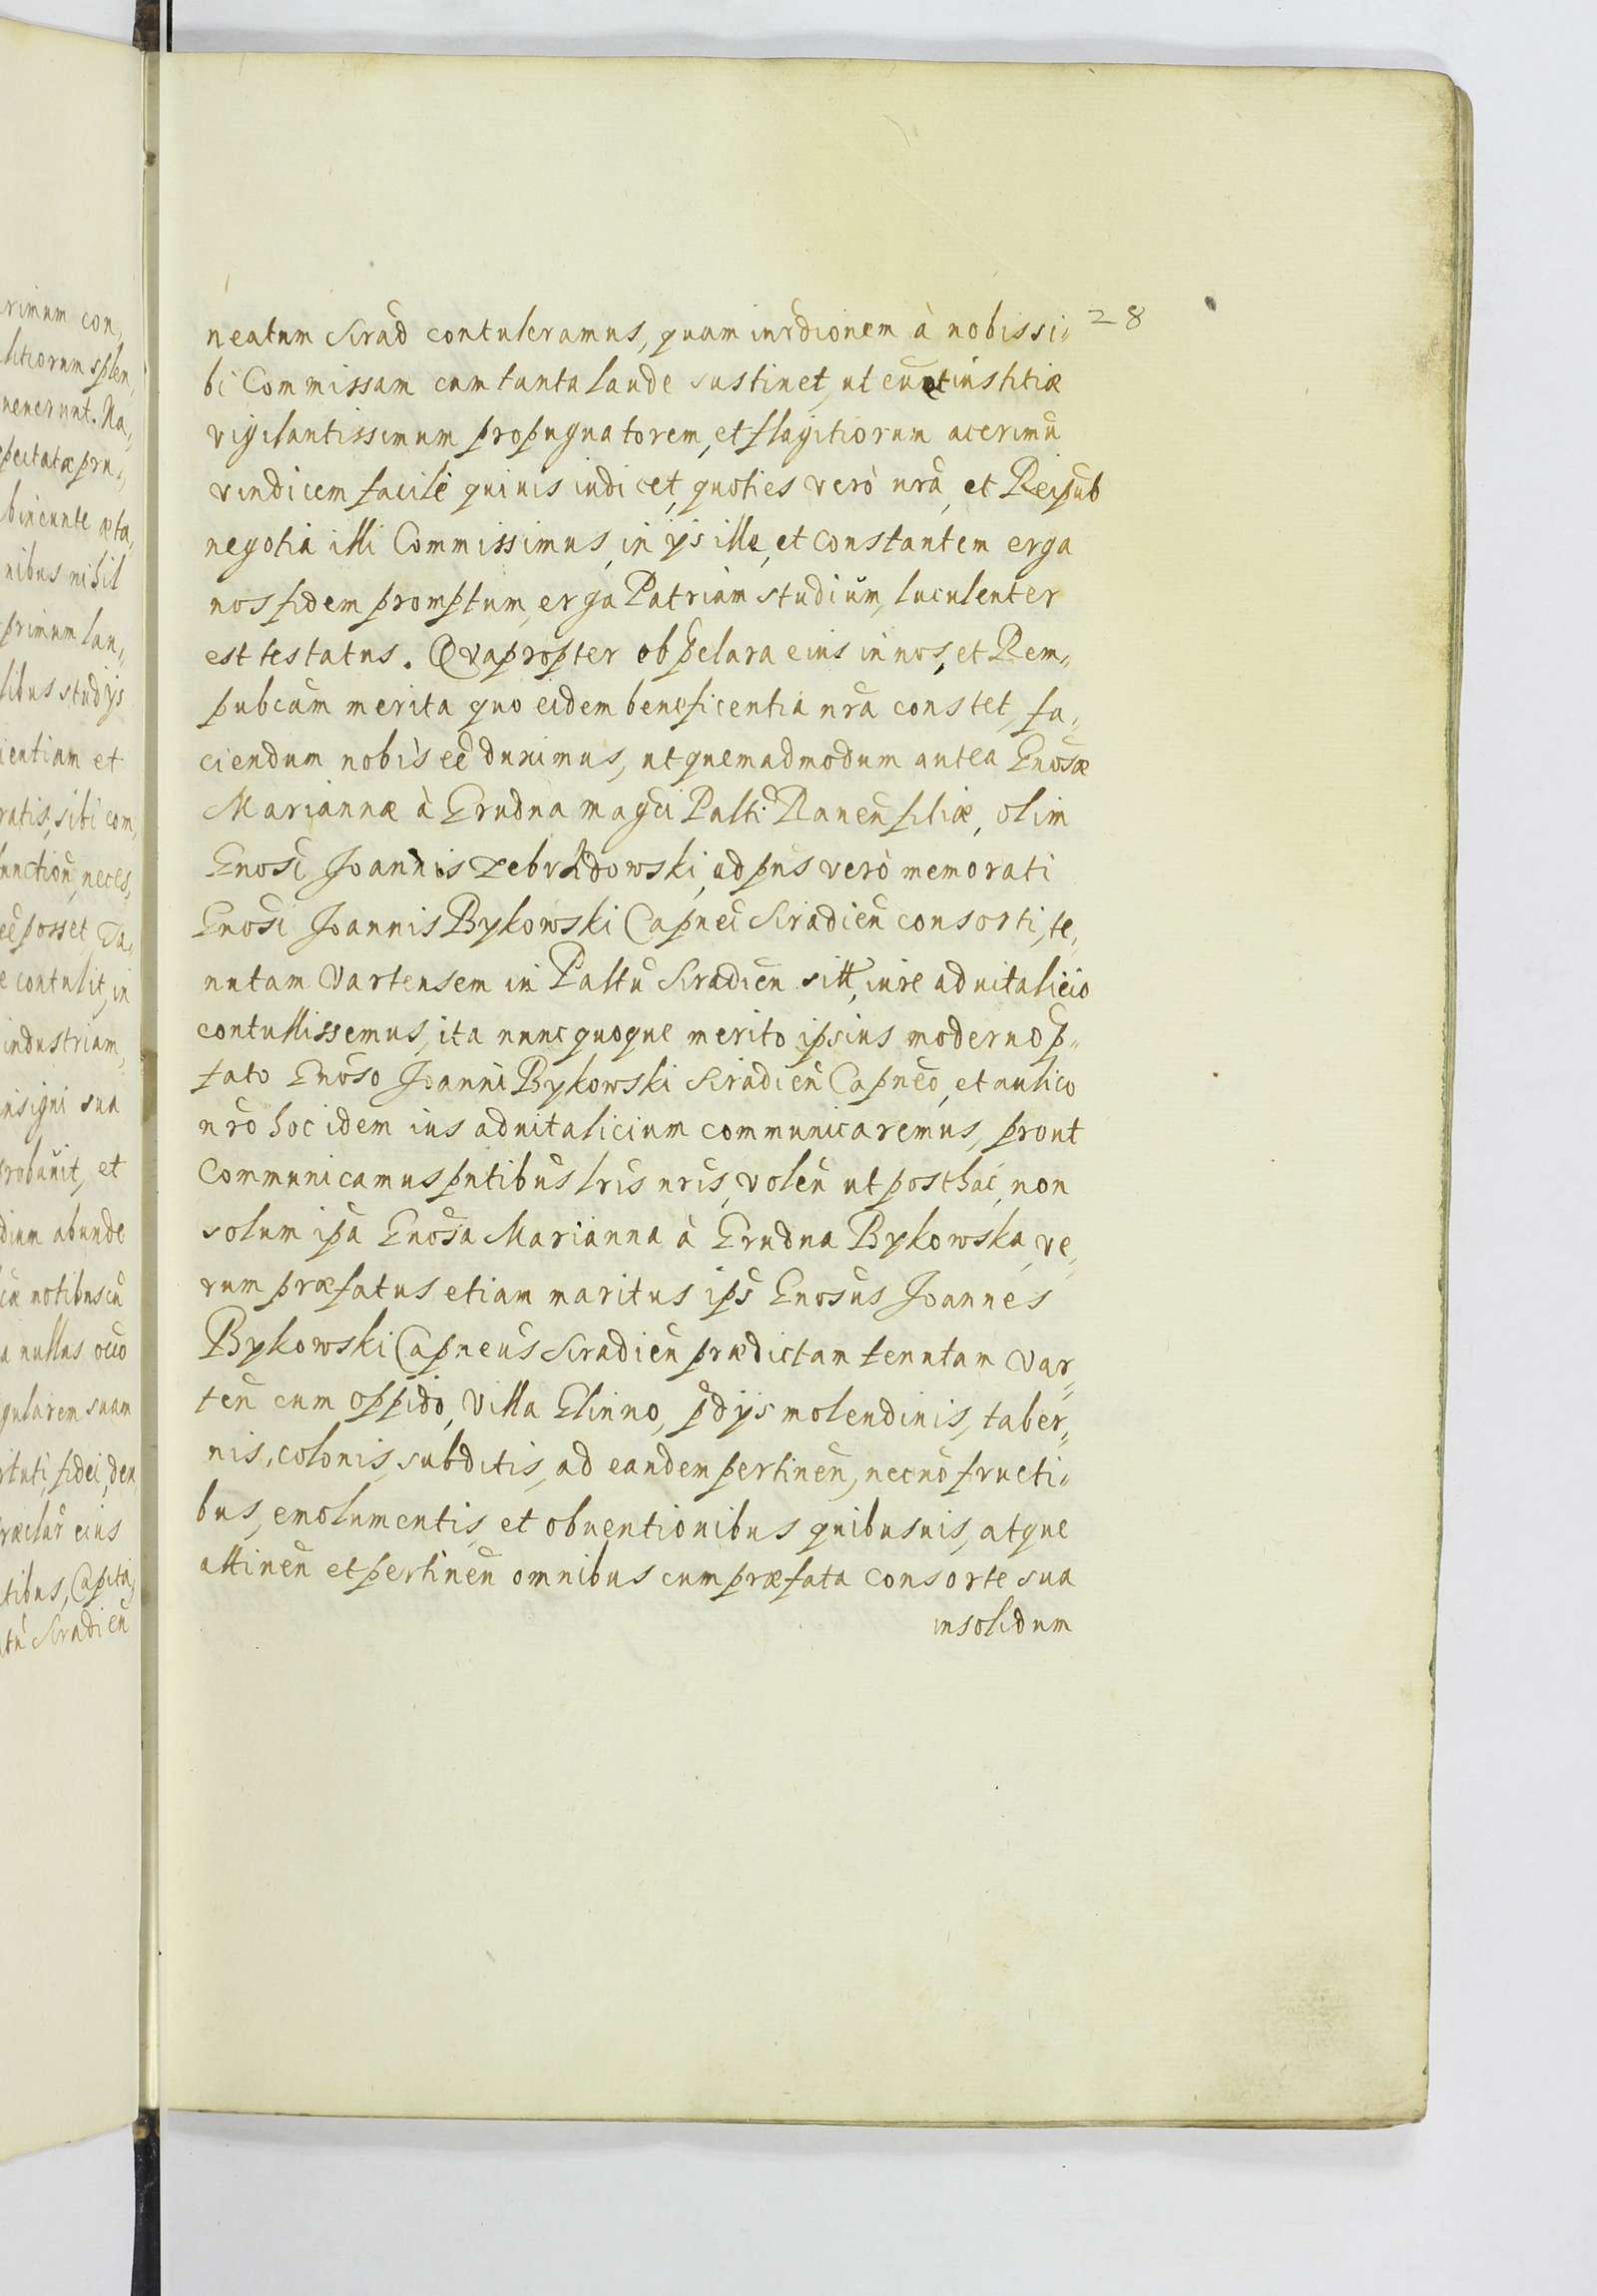 rimum con„
litiorum splen„
nenerunt. Na„
pectatæ pru„
bineunte æta„
nibus nihil
primum lau„
libus studijs
ientiam et
ratis, sibi com„
functioñ, neces„
eẽ posset, Ta„
e contulit, in
industriam,
nsigni sua
probauit, et
dium abunde
notibus cũ
a nullus occõ
gularem suam
rtuti, fidei, den
ræclar̃ eius
tibus, Capita„
atũ Siradieñ
28
neatum Sirad̃ contuleramus, quam iurd̃ionem à nobis si„
bi Commissam cum tanta laude sustinet, ut eũ et iustitiæ
vigilantissimum propugnatorem, et flagitiorum acerimũ
vindicem facilè quiuis iudicet, quoties verò nr̃a, et Reipub̃
negotia illi Commissimus, in ijs ille, et constantem erga
nos fidem promptum, erga Patriam studium, luculenter
est testatus. Qvapropter ob p̃clara eius in nos, et Rem„
pubcam merita quo eidem beneficentia nr̃a constet, fa„
ciendum nobis eẽ duximus, ut quemadmodum antea Gñosæ
Mariannæ à Grudna magc̃i Palt̃i Raueñ filiæ, olim
Gñosi Joannis Zebrzidowski, ad p̃ns verò memorati
Gñosi Joannis Bykowski Capnei Siradieñ consorti, te„
nutam Vartensem in Paltũ Siradieñ sitt̃, iure aduitalicio
contullissemus, ita nunc quoque merito ipsius moderno p̃„
fato Gñoso Joanni Bykowski Siradieñ Capneo, et aulico
nr̃o hoc idem ius aduitalicium communicaremus, prout
Communicamus pñtibus lr̃is nr̃is, voleñ ut posthac, non
solum ip̃a Gñosa Marianna à Grudna Bykowska, ve„
rum præfatus etiam maritus ip̃s Gñosus Joannes
Bykowski Capneus Siradieñ prædictam tenutam Var„
teñ cum oppido, Villa Glinno, p̃dijs molendinis, taber„
nis, colonis, subditis, ad eandem pertineñ, necnõ fructi„
bus, emolumentis, et obuentionibus quibusuis, atque
attineñ et pertineñ omnibus cum præfata consorte sua
insolidum